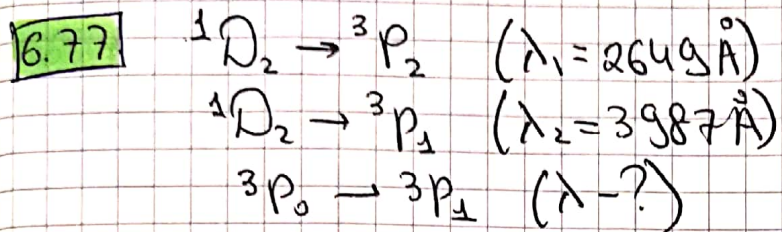 6.77 ¹D₂ → ³P₂ (λ₁ = 2649 Å)
¹D₂ → ³P₁ (λ₂ = 3987 Å)
³P₀ — ³P₁ (λ - ?)